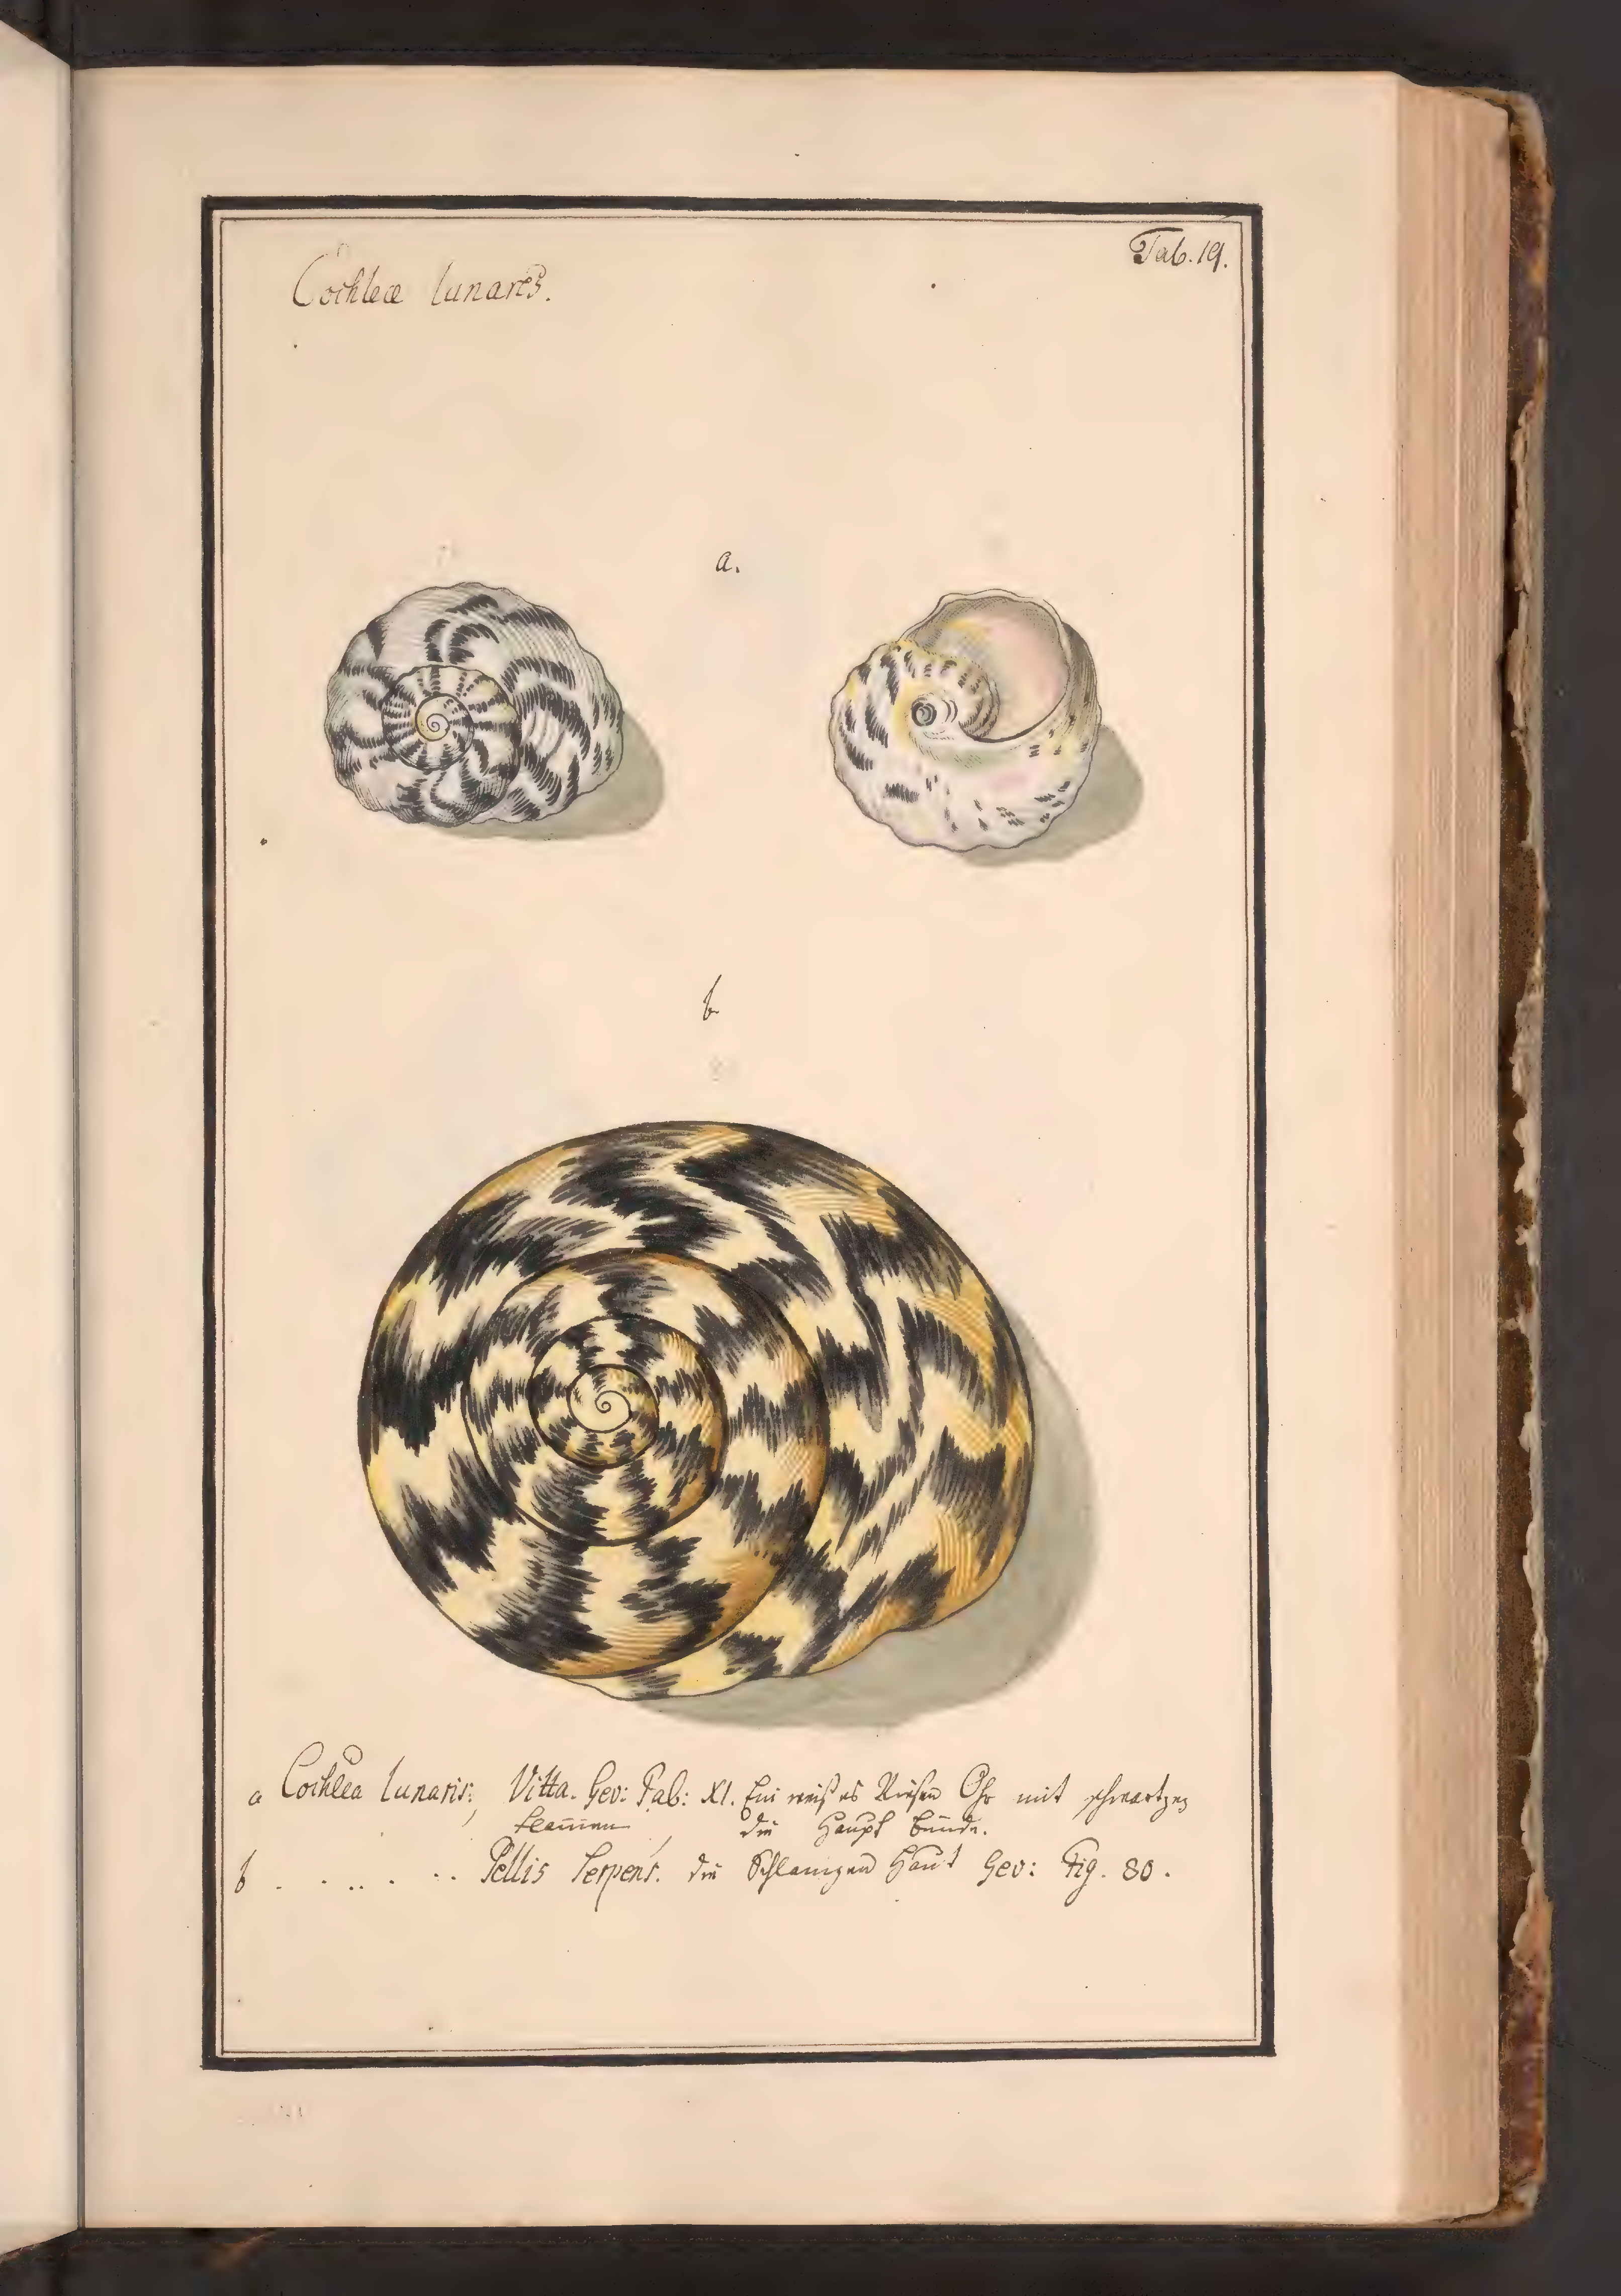 Tab. 19.
Cochleæ lunares.
a.
b
a Cochlea lunaris, Vitta. Gev: Tab: XI. Ein weißes Riesen Ohr mit schwartzen
flam̄en, die Haupt binde.
b . . .. . .. Pellis Serpent. die Schlangen Haut Gev: Fig. 80.